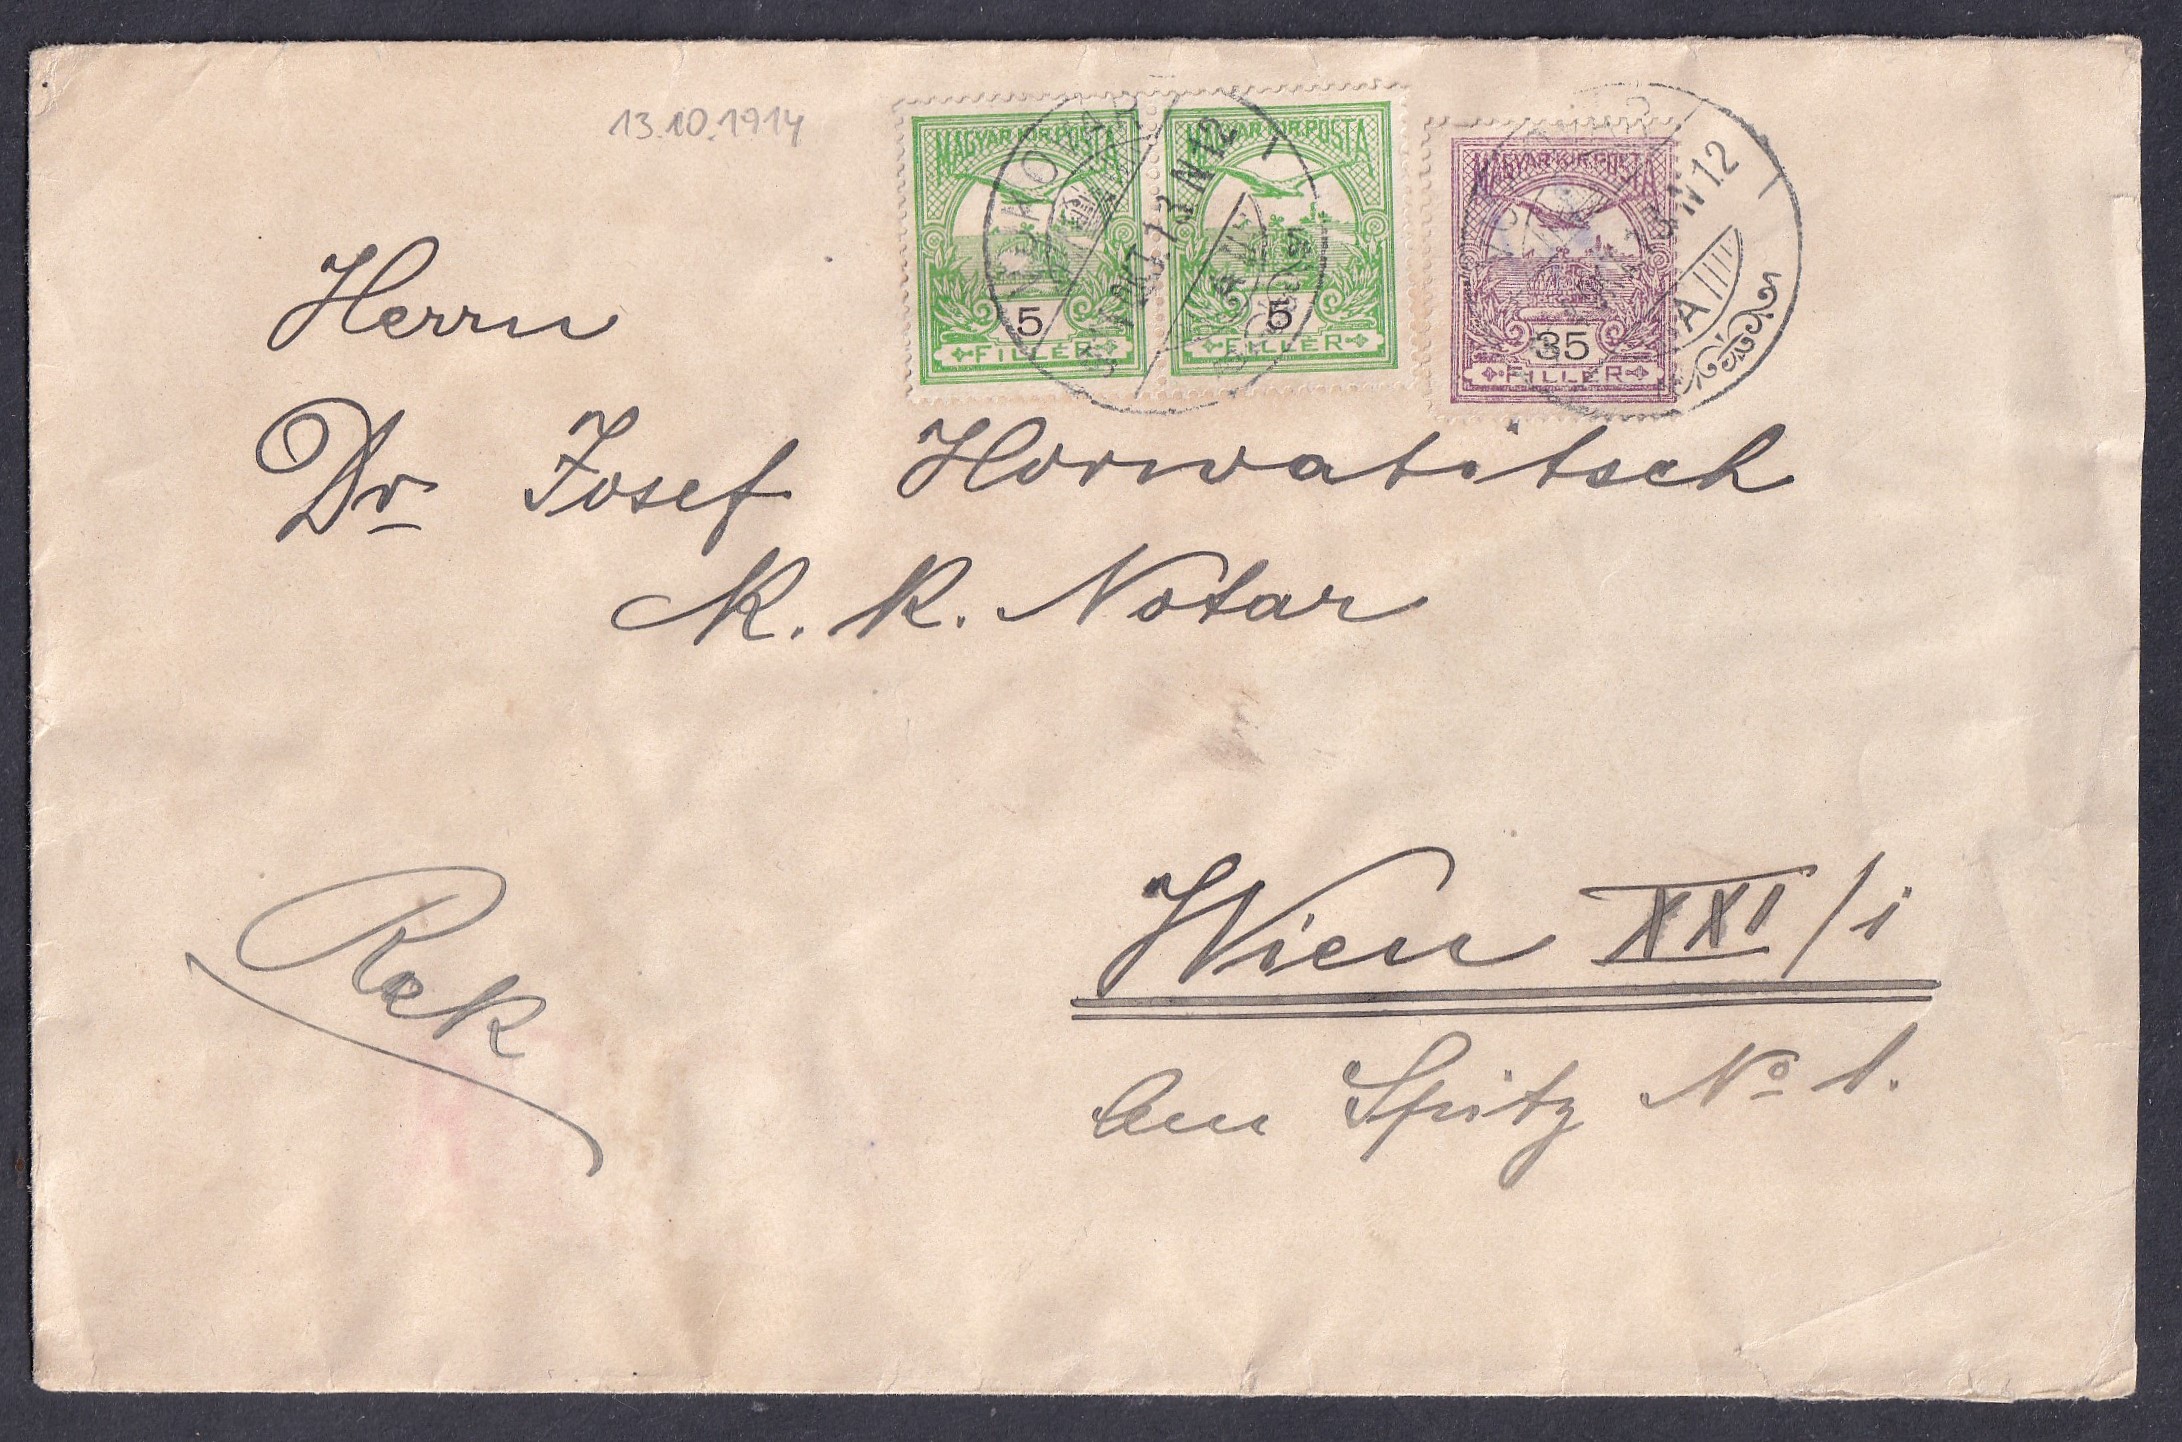 13.10.1914
MAGYAR KIR. POSTA
5
FILLÉR
MAGYAR KIR. POSTA
5
FILLÉR
MAGYAR KIR. POSTA
35
FILLÉR
914 OKT. 13 N 12
N 12
Herrn
Dr Josef Horwatitsch
K. K. Notar
Rek
Wien XXI/i
Am Spitz No 1.